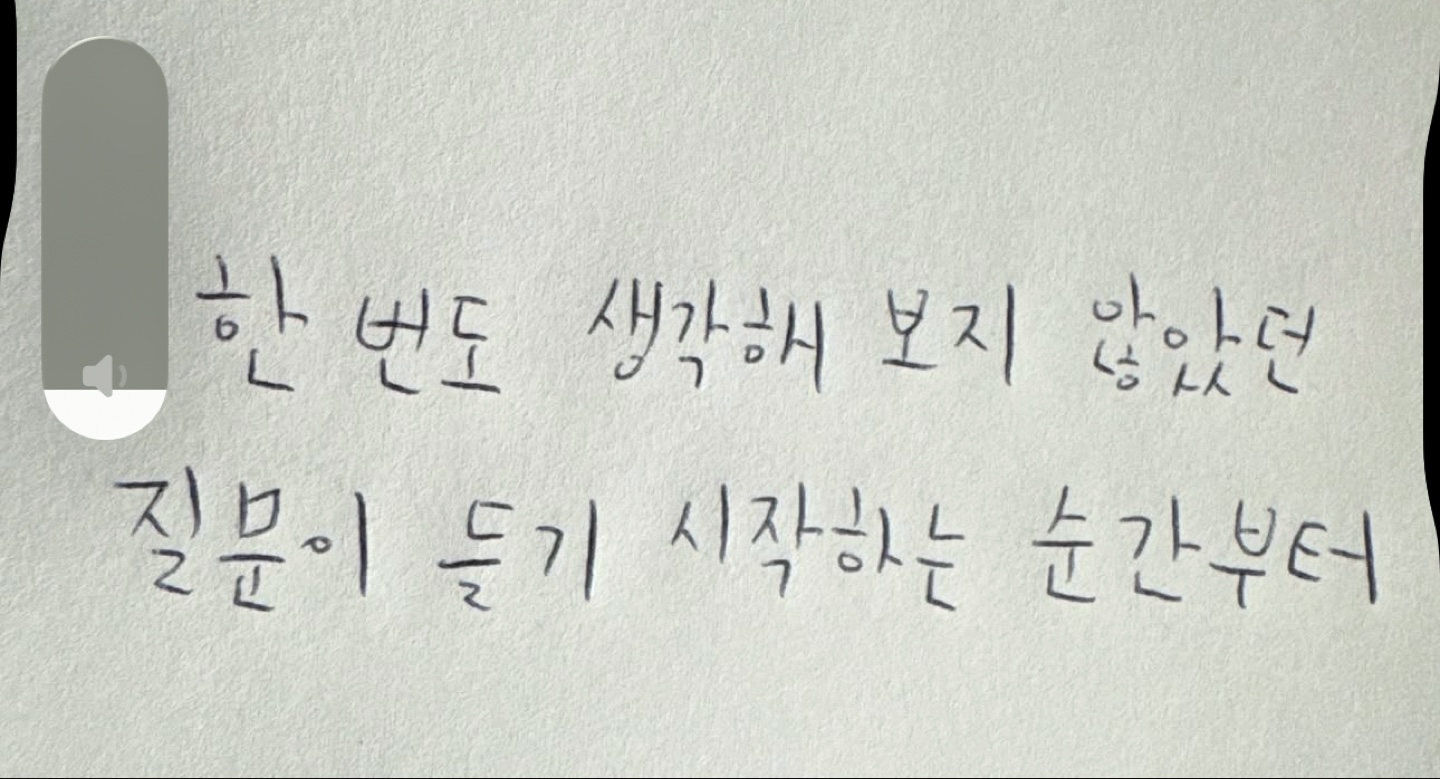 한 번도 생각해 보지 않았던
질문이 들기 시작하는 순간부터